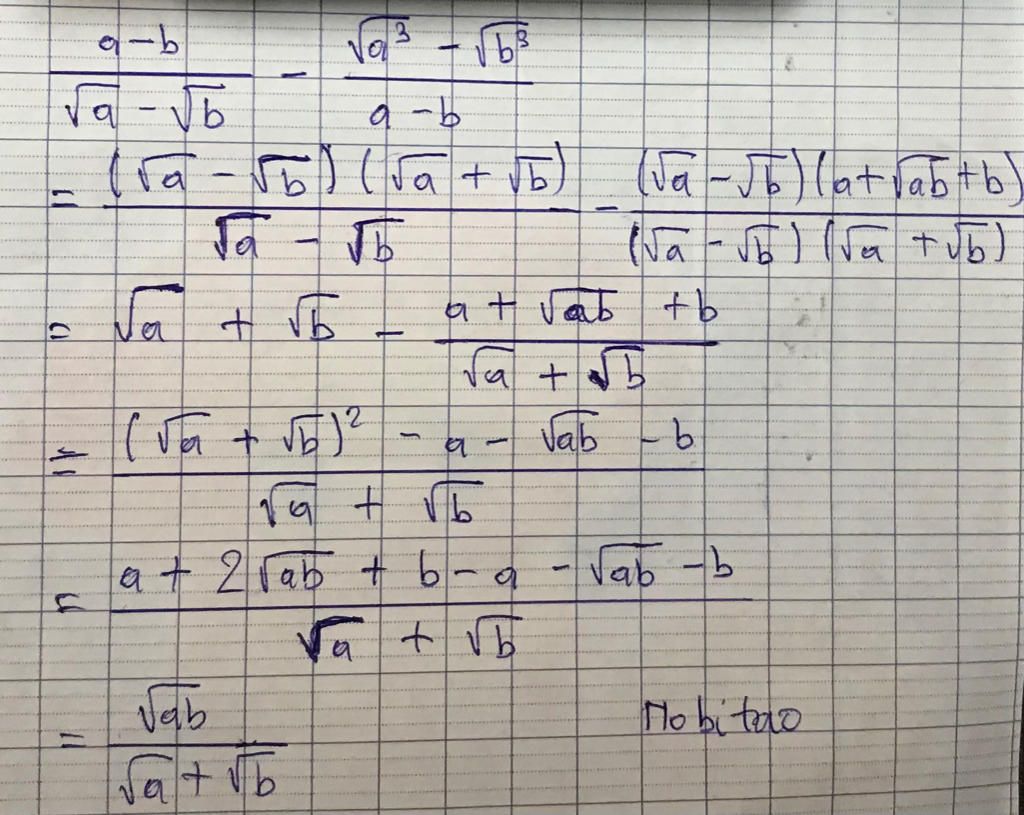 (a-b)/(√a - √b) - (√a³ - √b³)/(a-b)
= (√a - √b)(√a + √b)/(√a - √b) - (√a - √b)(a+√ab+b)/(√a - √b)(√a + √b)
= √a + √b - (a + √ab + b)/(√a + √b)
= ((√a + √b)² - a - √ab - b)/(√a + √b)
= (a + 2√ab + b - a - √ab - b)/(√a + √b)
= √ab/(√a + √b) Nobitao